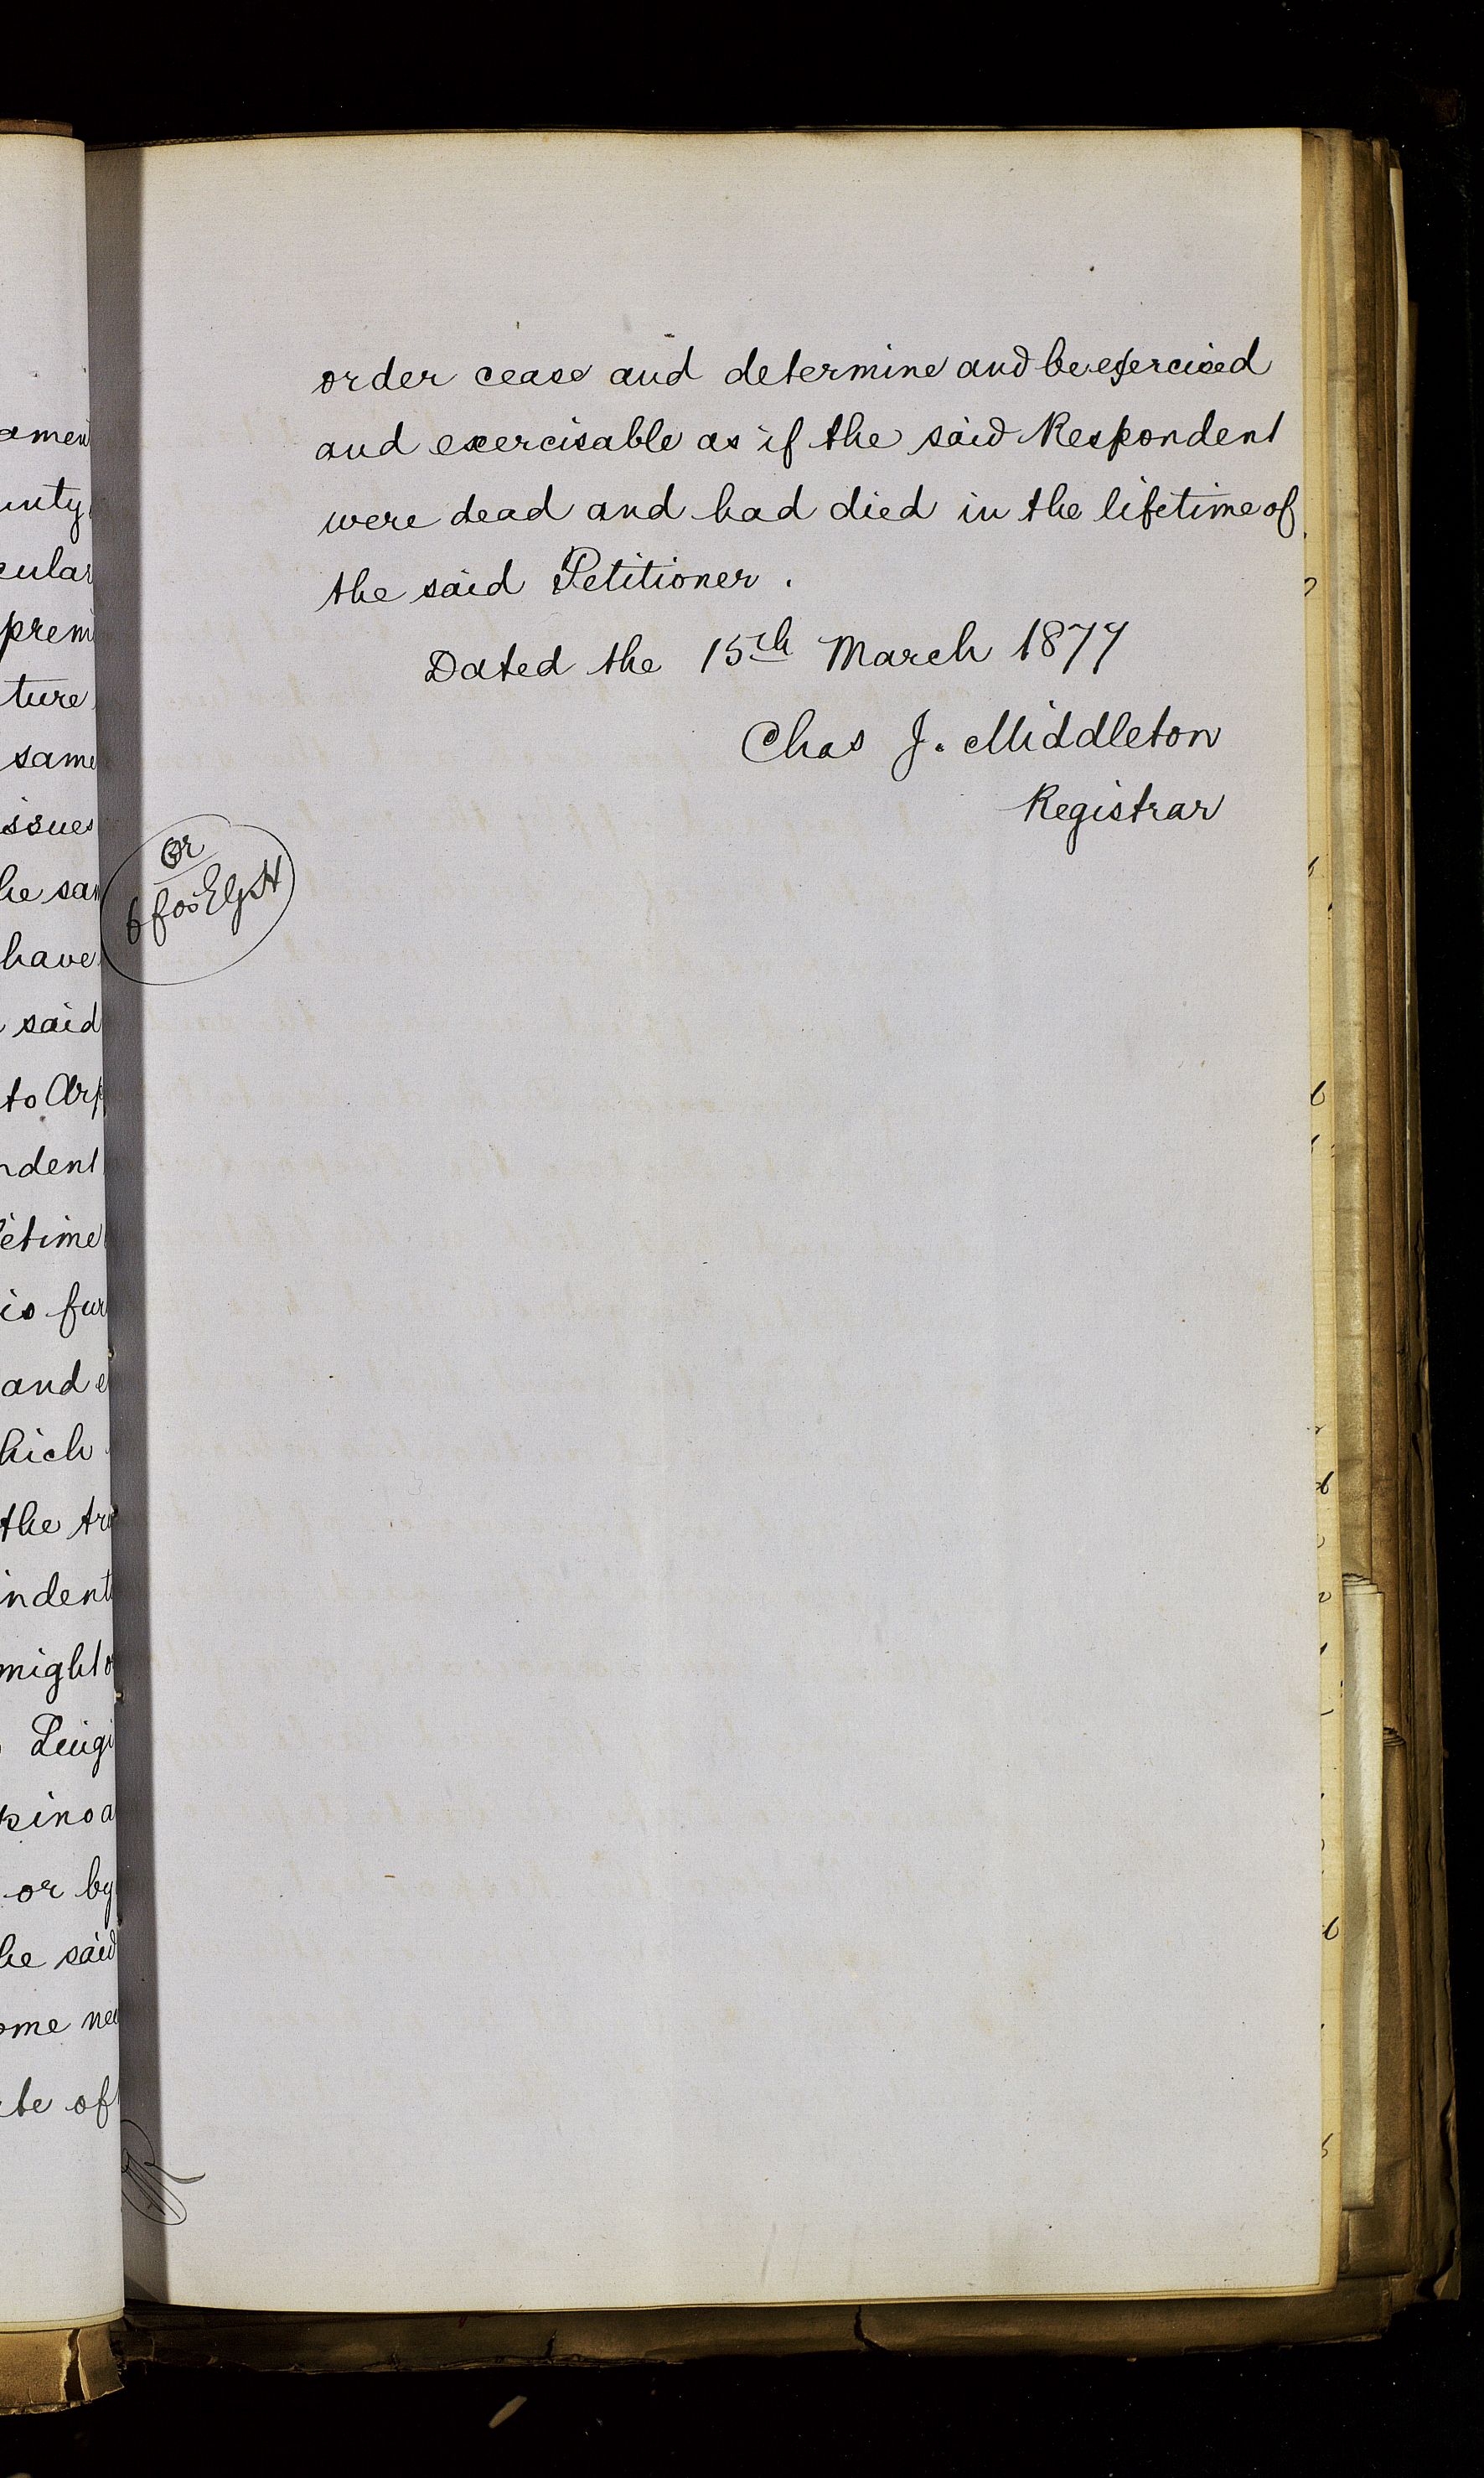 amen
unty
cular
prem
ture
same
issues
he sam
have
said
to Arp
ndent
etime
is fur
and e
hich
the tru
indent
might o
Luigi
pino a
or by
he said
ome ne
te of
order cease and determine and be exercised
and exercisable as if the said Respondent
were dead and had died in the lifetime of
the said Petitioner.
Dated the 15th March 1877
Chas J. Middleton
Registrar